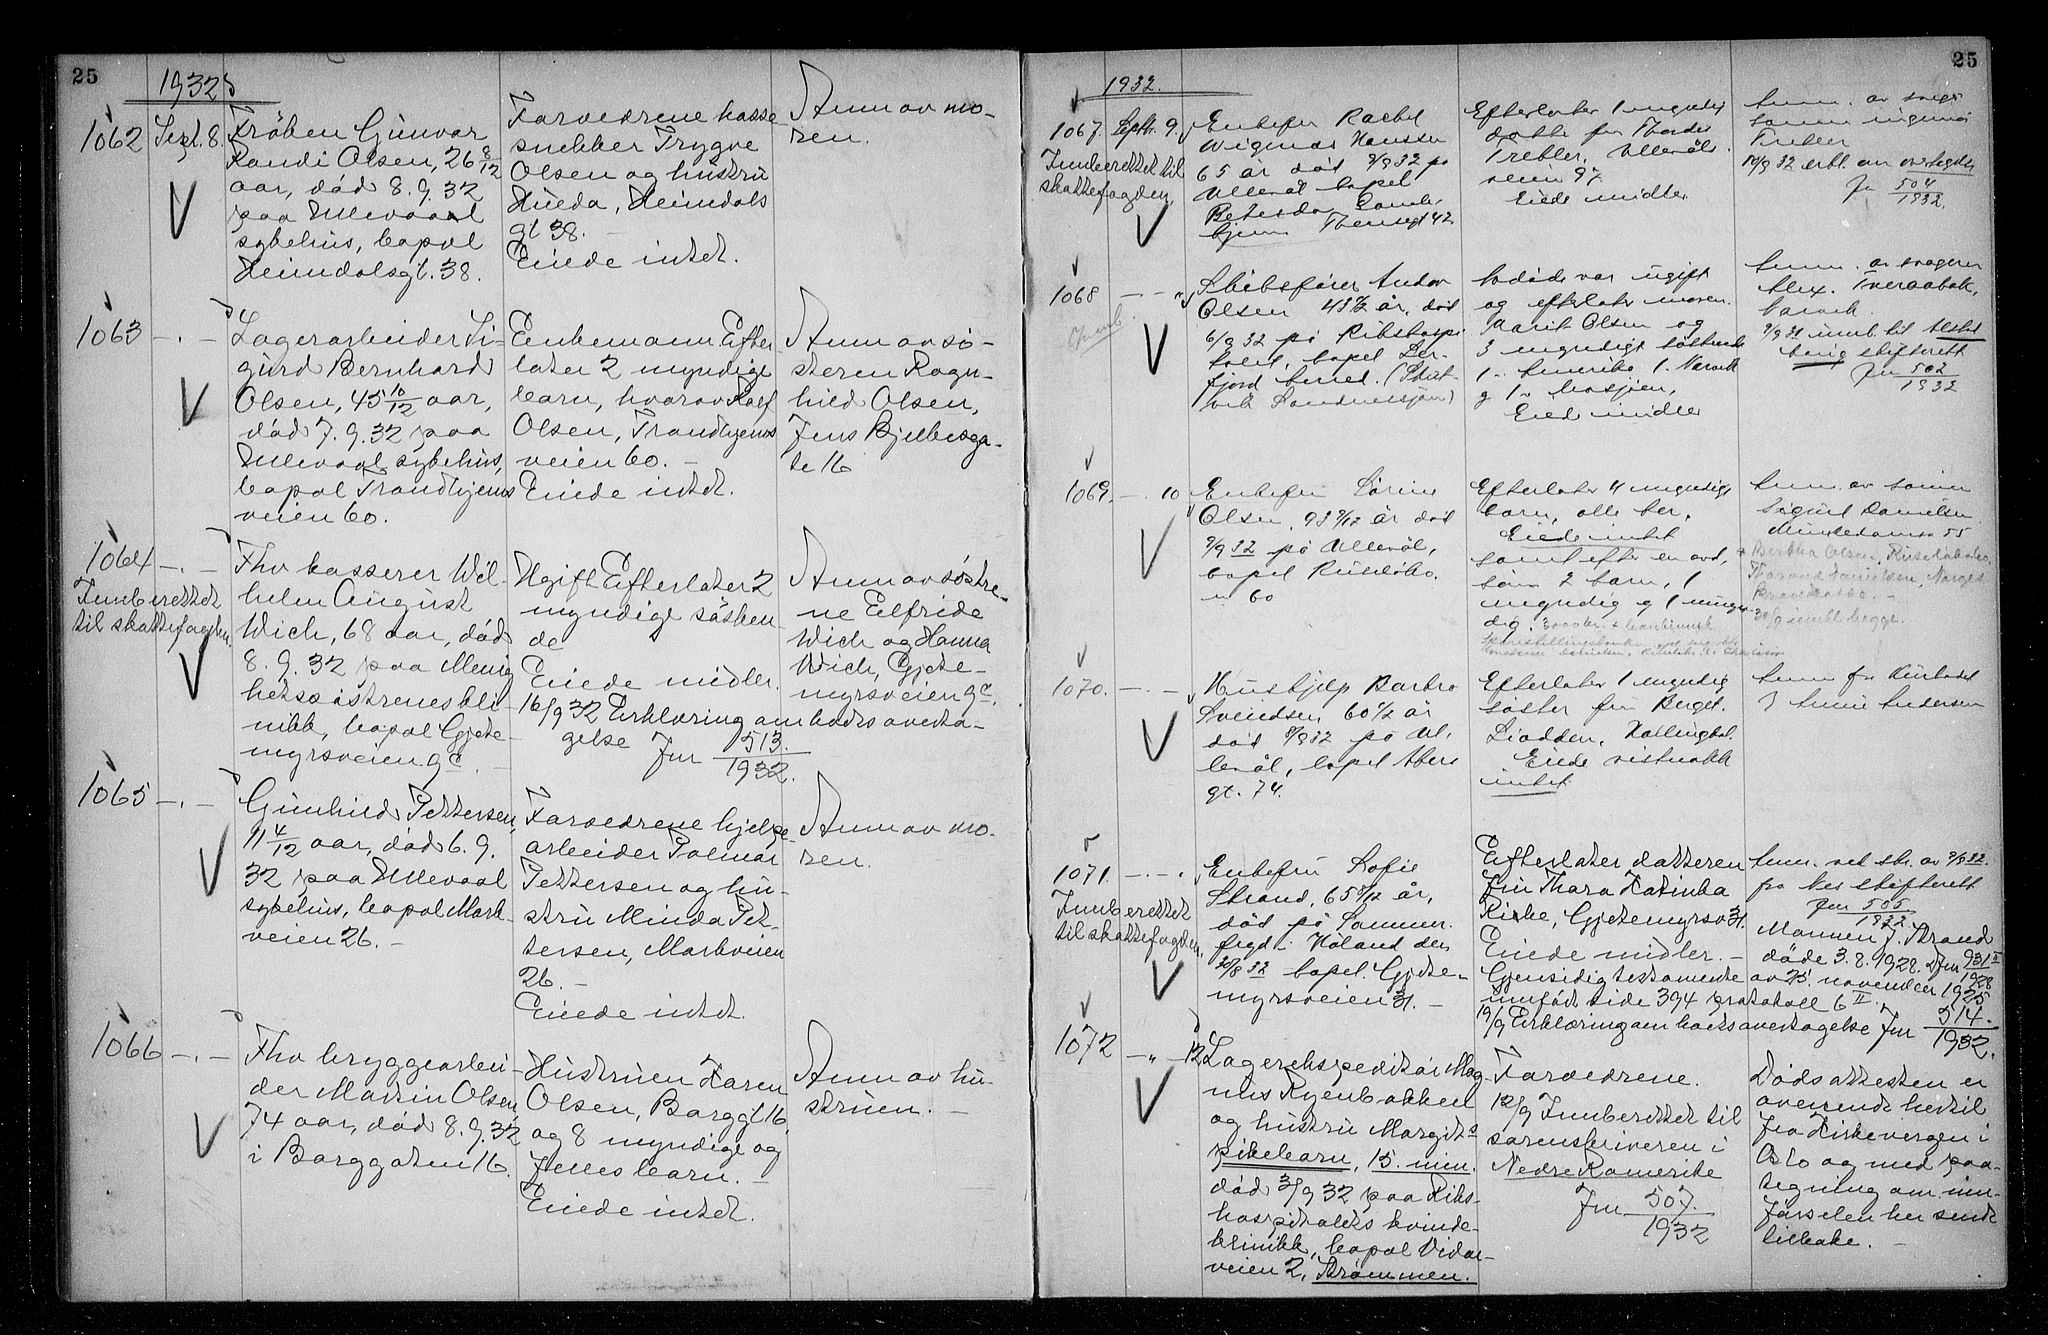 25
1932
1062
Sept. 8.
Frøken Gunvor
Randi Olsen, 26 8/12
aar, død 8.9.32
paa Ullevaal
sykehus, bopæl
Heimdalsgt. 38.
Forældrene kasse-
snekker Trygve
Olsen og hustru
Hulda, Heimdals
gt 38. –
Eiede intet.
Anm av mo-
ren.
1063 – . –
Lagerarbeider Si-
gurd Bernhard
Olsen, 45 10/12 aar,
død 7.9.32 paa
Ullevaal sykehus,
bopæl Trondhjems
veien 60.
Enkemann Efter
later 2 myndige
barn, hvorav Rolf
Olsen, Trondhjems
veien 60. –
Eiede intet.
Anm av sø-
steren Ragn-
hild Olsen,
Jens Bjelkesga-
te 16
1064 – . –
Innberettet
til skattefogden.
Fhv kasserer Wil-
helm August
Wich, 68 aar, død
8.9.32 paa Menig
hetssøstrenes kli-
nikk, bopæl Gjete-
myrsveien 9c. –
Ugift Efterlater 2
myndige søsken
de
Eiede midler.
16/9 32 Erklæring om boets overta-
gelse Jnr 513.
1932.
Anm av søstre-
ne Elfride
Wich og Hanna
Wich, Gjete-
myrsveien 9c.
1065 – . –
Gunhild Pettersen,
11 4/12 aar, død 6.9.
32 paa Ullevaal
sykehus, bopæl Mark-
veien 26. –
Forældrene hjelpe-
arbeider Polmar
Pettersen og hu-
stru Minda Pet-
tersen, Markveien
26. –
Eiede intet.
Anm av mo-
ren.
1066 – . –
Fhv bryggearbei-
der Martin Olsen
74 aar, død 8.9.32
i Borggaten 16.
Hustruen Karen
Olsen, Borggt 16.
og 8 myndige og
felles barn. –
Eiede intet.
Anm av hu-
struen. –
25
1932.
1067. Septbr. 9.
Innberettet til
skattefogden.
Enkefru Rachel
Hanssen
65 år død 8/9 32 på
Ullevål bopel
Betesda
hjem Thereses gt 42
Efterlater 1 myndig
datter fru Thordis
Trebler, Ullevåls-
veien 97
Eiede midler
Anm. av sviger
sønnen ingeniør
Trebler
10/9 32 erkl. om overtagelse
Jnr 504
1932.
1068 – . – "
Skibsfører Anton
Olsen 43 1/2 år, død
6/9 32 på Rikshospi
talet, bopel Ler-
fjord
Avdøde var ugift
og efterlater moren
Marit Olsen og
3 myndige søskende
1 i Amerika 1 i Narvik
og 1 i Mosjøen,
Eiede midler
Anm. av svogeren
Alex. Tveraabak,
Narvik
9/9 32 innb. til Alstad
haug skifterett
Jnr 502
1932
1069. – . 10
Enkefru Sørine
Olsen, 93 9/12 år død
9/9 32 på Ullevål,
bopel
60
Efterlater 4 myndige
barn, alle her.
Eiede intet
samt efter en avd,
sønn 2 barn, 1
myndig og 1 umyn-
dig.
Anm. av sønnen
Sigurd Danielsen
Munkedamsv 55
Bertha Olsen,
30/9 innkt begge.
1070. – . –
Hushjelp Barbro
Sveindsen 60 1/2 år
død 8/9 32 på Ul.
levål, bopel Akers
gt. 74.
Efterlater 1 myndig
søster fru Berget.
Liodden, Hallingdal.
Eiede vistnokk
intet.
Anm fra Kirkeset
v Annie Andersen
1071. – . –
Innberettet
til skattefogden.
Enkefru Sofie
Strand, 65 5/12 år,
død på Sommer.
frgd i Høland den
25/8 32 bopel Gjete-
myrsveien 31. –
Efterlater datteren
Fru Thora Katinka
Rirke, Gjetemyrsv 31.
Eiede midler. –
Gjensidig testamente av 25. november 1925
innført side 394 protokoll 6 II.
19/9 Erklæring om boets overtagelse Jnr 514.
1932.
Anm. ved skr. av 9/9 32.
fra Nes skifterett
Jnr 505
1932
Mannen J. Strand
døde 3.8.1928. Jnr 931 II
1928
1072 – " – 12.
Lagerekspeditør Mag-
nus Ryenbakken
og hustru Margits
pikebarn, 15. min.
død 3/9 32 paa Riks-
hospitalets kvinde-
klinikk, bopæl Vidar-
veien 2, Strømmen.
Forældrene.
12/9 Innberettet til
sorenskriveren i
Nedre Romerike
Jnr 507.
1932
Dødsattesten er
oversendt hertil
fra Kirkevergen i
Oslo og med paa-
tegning om inn-
førselen her sendt
tilbake. –